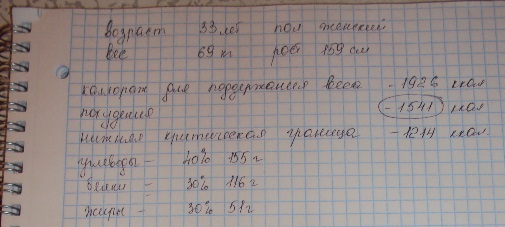 возраст 33 лет пол женский
вес 69 кг рост 159 см
калораж для поддержания веса - 1926 ккал
похудения - 1541 ккал
нижняя критическая граница - 1214 ккал
углеводы - 40% 155 г
белки - 30% 116 г
жиры - 30% 51 г